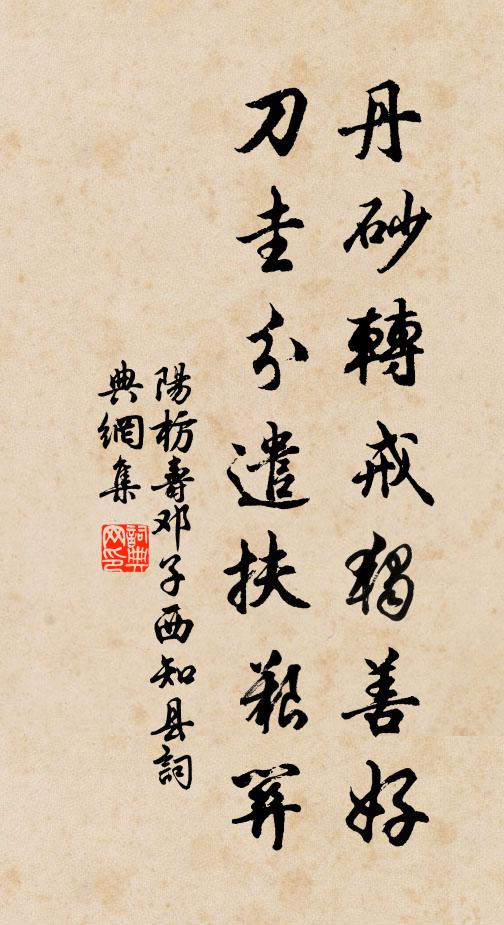 丹砂轉戒獨善好
刀圭分遣扶艱
陽枋壽邓子西知县詞
典網集
詞典网印